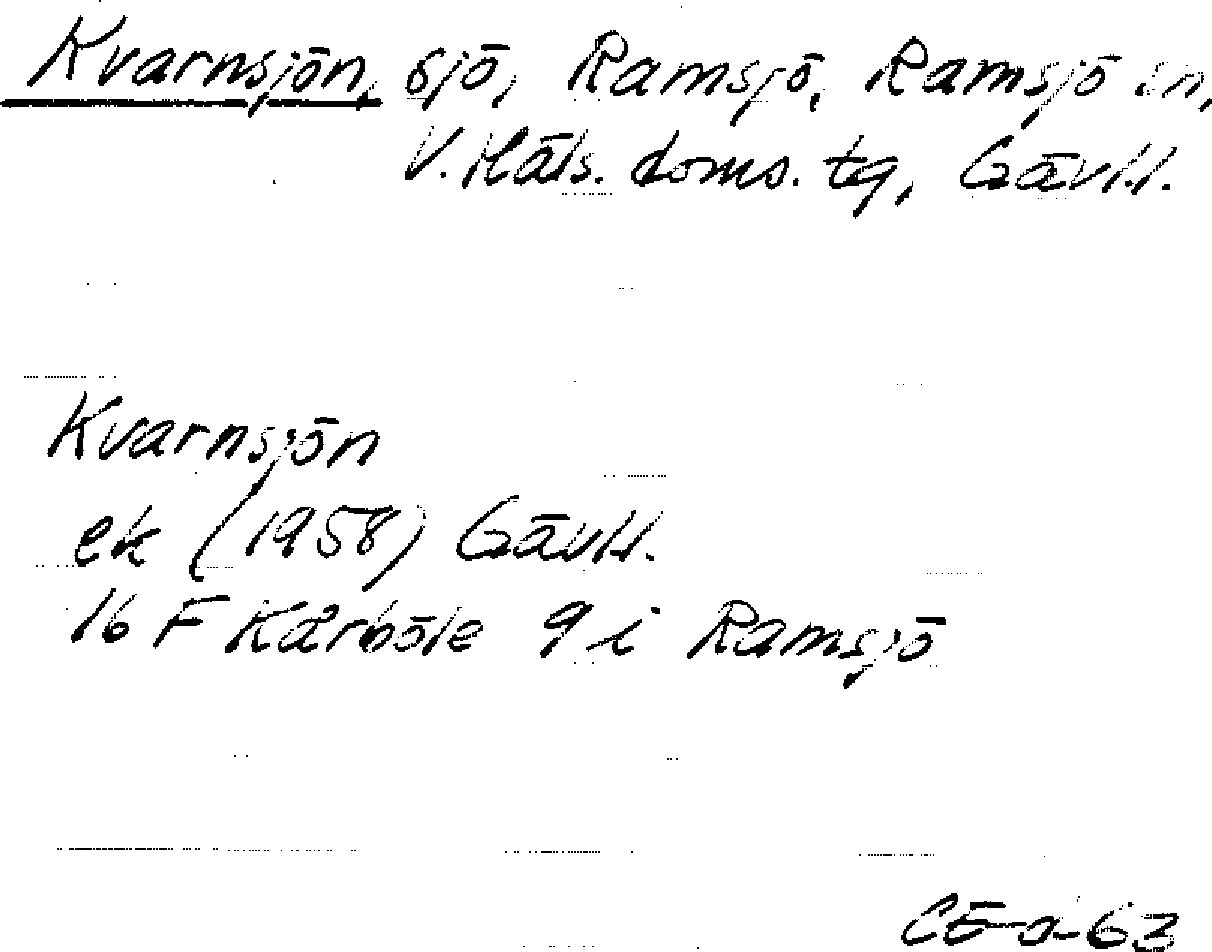 Kvarnsjön, sjö, Ramsjö, Ramsjö sn,
V. Häls. doms. tg, Gävl.l.
Kvarnsjön
ek (1958) Gävl.l.
16 F Kårböle 9 i Ramsjö